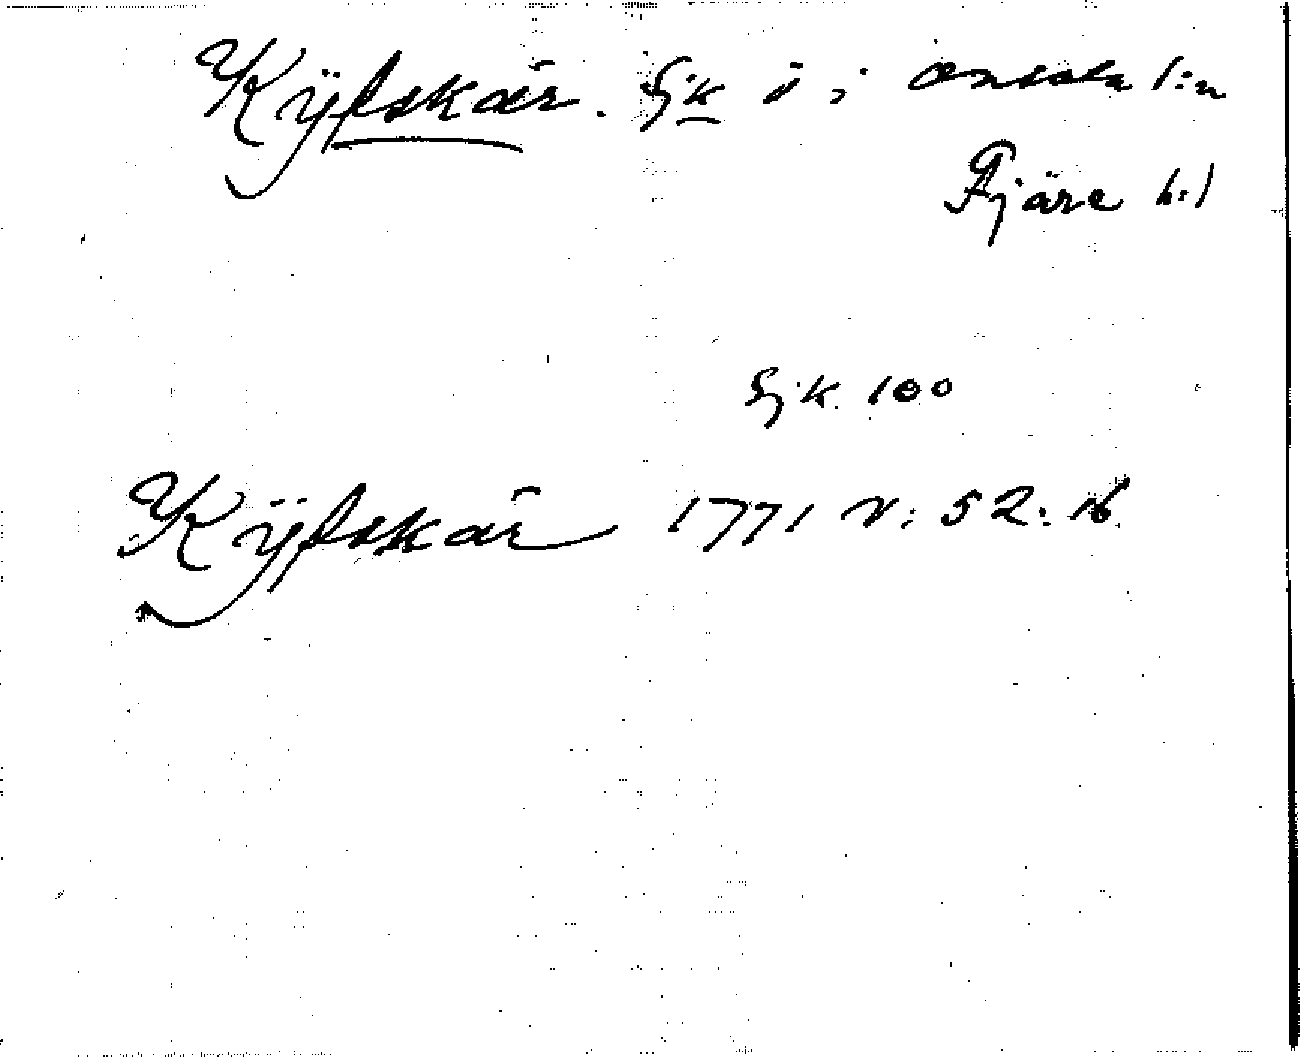 Kÿfskär. Sjk ö i Onsala s:n
Fjäre h:d
Sjk 100
Kÿfskär 1771 v: 52: 16